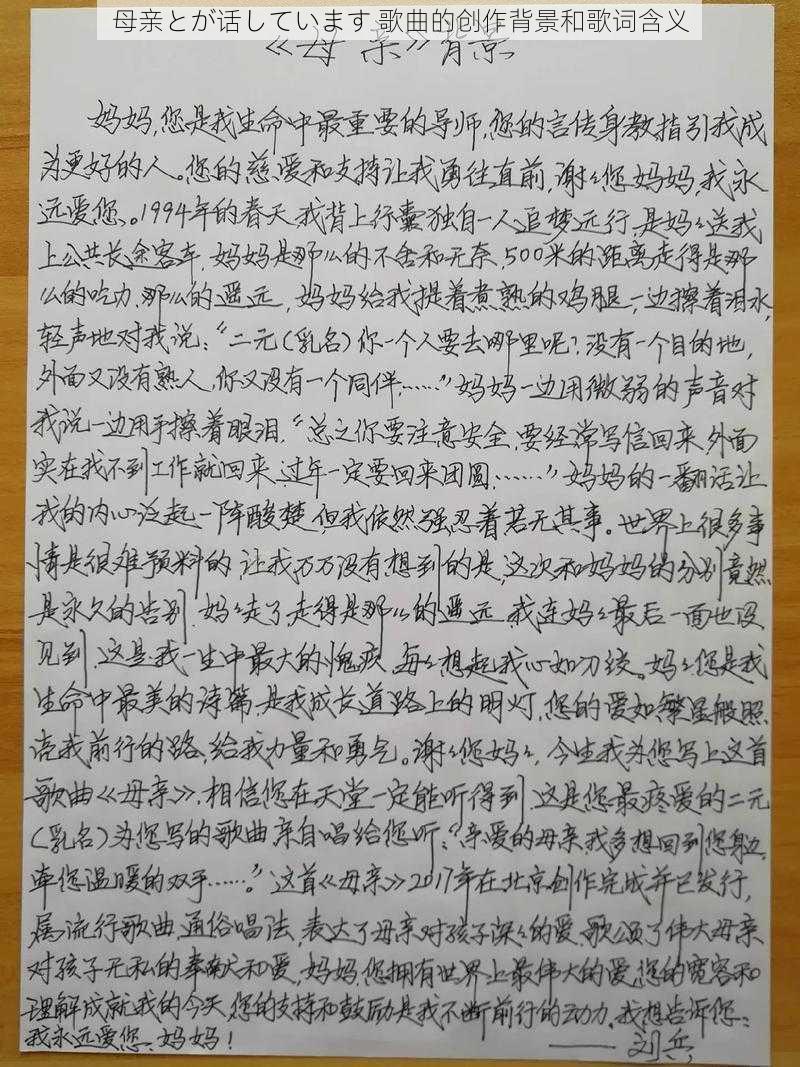 母亲とが话しています 歌曲的创作背景和歌词含义
《母亲》背景
妈妈,您是我生命中最重要的导师,您的言传身教指引我成
为更好的人。您的慈爱和支持让我勇往直前,谢々您妈妈,我永
远爱您、。1994年的春天,我背上行囊独自一人追梦远行,是妈々送我
上公共长途客车,妈妈是那么的不舍和无奈,500米的距离走得是那
么的吃力,那么的遥远,妈妈给我提着煮熟的鸡腿,一边擦着泪水,
轻声地对我说:“二元(乳名)你一个人要去哪里呢?没有一个目的地,
外面又没有熟人,你又没有一个同伴……”妈妈一边用微弱的声音对
我说一边用手擦着眼泪,“总之你要注意安全,要经常写信回来,外面
实在找不到工作就回来,过年一定要回来团圆……”妈妈的一翻话让
我的内心泛起一阵酸楚,但我依然强忍着若无其事。世界上很多事
情是很难预料的,让我万万没有想到的是,这次和妈妈的分别竟然
是永久的告别,妈々走了走得是那么的遥远,我连妈々最后一面也没
见到,这是我一生中最大的愧疚,每々想起我心如刀绞。妈々您是我
生命中最美的诗篇,是我成长道路上的明灯,您的爱如繁星般照
亮我前行的路,给我力量和勇气。谢々您妈々,今生我为您写上这首
歌曲《母亲》,相信您在天堂一定能听得到,这是您最疼爱的二元
(乳名)为您写的歌曲亲自唱给您听:“亲爱的母亲,我多想回到您身边,
牵您温暖的双手……”这首《母亲》2017年在北京创作完成并已发行,
属流行歌曲,通俗唱法,表达了母亲对孩子深々的爱,歌颂了伟大母亲
对孩子无私的奉献和爱,妈妈,您拥有世界上最伟大的爱,您的宽容和
理解成就我的今天,您的支持和鼓励是我不断前行的动力,我想告诉您:
我永远爱您、妈妈!
——刘兵